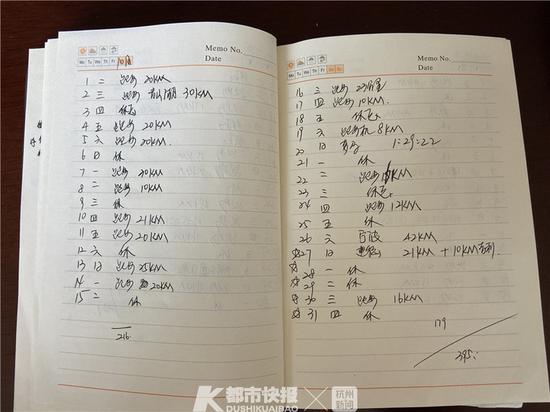 Memo No.
Date
Mo Tu We Th Fr Sa Su
10月
1 二 跑步 20KM
2 三 跑步 30KM
3 四 休息
4 五 跑步 20KM
5 六 跑步 20KM.
6 日 休
7 一 跑步 20KM
8 二 跑步 10KM
9 三 休
10 四 跑步 21KM
11 五 跑步 20KM
12 六 休
13 日 跑步 25KM
14 一 跑步 20KM
15 二 休
216.
Memo No.
Date
Mo Tu We Th Fr Sa Su
16 三 跑步 23公里
17 四 跑步 10KM.
18 五 休息
19 六 跑步 8KM
20 日 1:29:22
21 一 休
22 二 跑步 KM
23 三 休息
24 四 跑步 12KM
25 五 休
26 六 42KM
27 日 21KM + 10KM
28 一 休
29 二 休
30 三 跑步 16KM
31 四 休
179
395.
都市快报 × 杭州新闻
DUSHIKUAIBAO